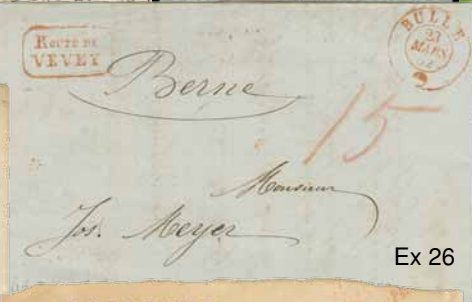 ROUTE DE
VEVEY
BULLE
23
MARS
Berne
15
Monsieur
Jos. Meyer
Ex 26